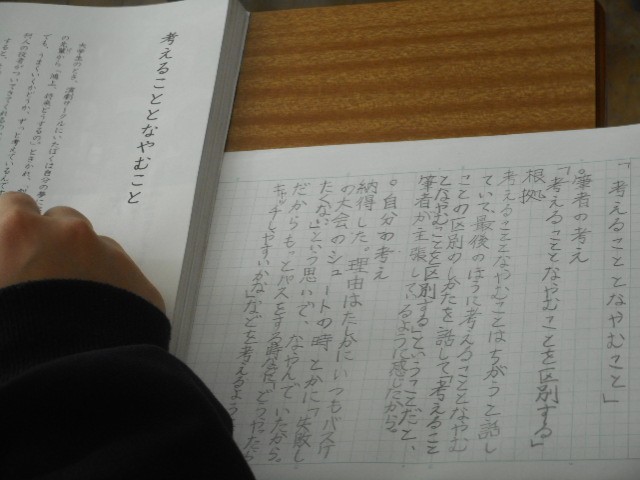 考えることとなやむこと
大学生のとき、演劇サークルにいたぼくは
「考えることとなやむこと」
○筆者の考え
「考えることとなやむことを区別する」
根拠
考えることとなやむことはちがうと話し
ていて、最後のほうに考えることとなやむ
ことの区別のしかたを話して「考えること
となやむことを区別する」ということだと、
筆者が主張しているように感じたから。
○自分の考え
納得した。理由はたしかにいつもバスケ
の大会のシュートの時とかに「失敗し
たくない」という思いで、なやんでいたから。
だからもっとパスをする時などは「どうやったら
キャッチしやすいかな」などを考えるよう